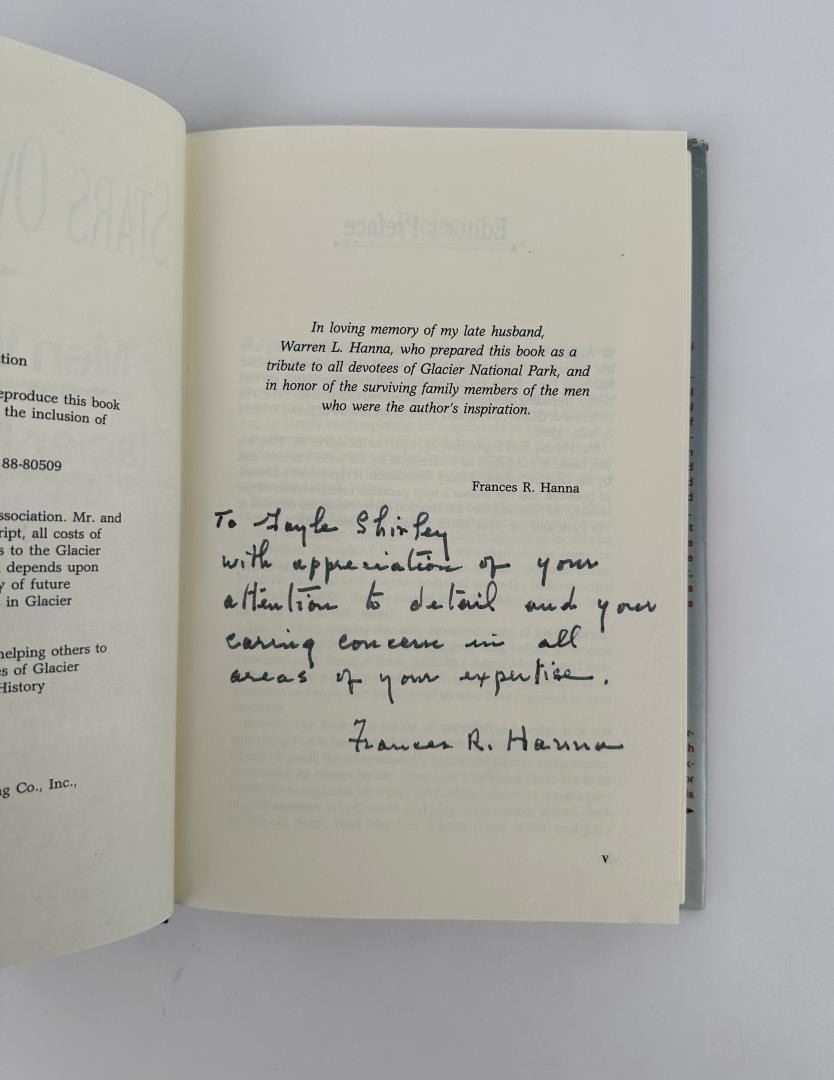 STARS OV
tion
eproduce this book
the inclusion of
88-80509
ssociation. Mr. and
ript, all costs of
s to the Glacier
depends upon
y of future
in Glacier
helping others to
es of Glacier
History
ng Co., Inc.,
Editor's Preface
In loving memory of my late husband,
Warren L. Hanna, who prepared this book as a
tribute to all devotees of Glacier National Park, and
in honor of the surviving family members of the men
who were the author's inspiration.
Frances R. Hanna
To Gayle Shirley
with appreciation of your
attention to detail and your
caring concern in all
areas of your expertise.
Frances R. Hanna
v